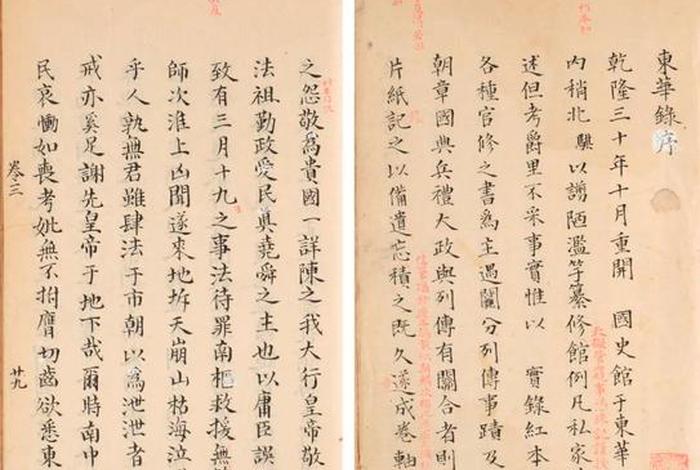 東華錄序
乾隆三十年十月重開 國史館于東華
內稍北騏以謭陋濫竽纂修館例凡私家
述但考爵里不采事實惟以 實錄紅本
各種官修之書爲主遇闕分列傳事蹟及
朝章國典兵禮大政與列傳有關合者則
片紙記之以備遺忘積之既久遂成卷軸
之怨敬爲貴國一詳陳之我大行皇帝敬
法祖勤政愛民眞堯舜之主也以庸臣誤
致有三月十九之事法待罪南樞救援無
師次淮上凶聞遂來地坼天崩山枯海泣
乎人孰無君雖肆法于市朝以爲泄泄者
戒亦奚足謝先皇帝于地下哉爾時南中
民哀慟如喪考妣無不拊膺切齒欲悉東
卷三
廿九